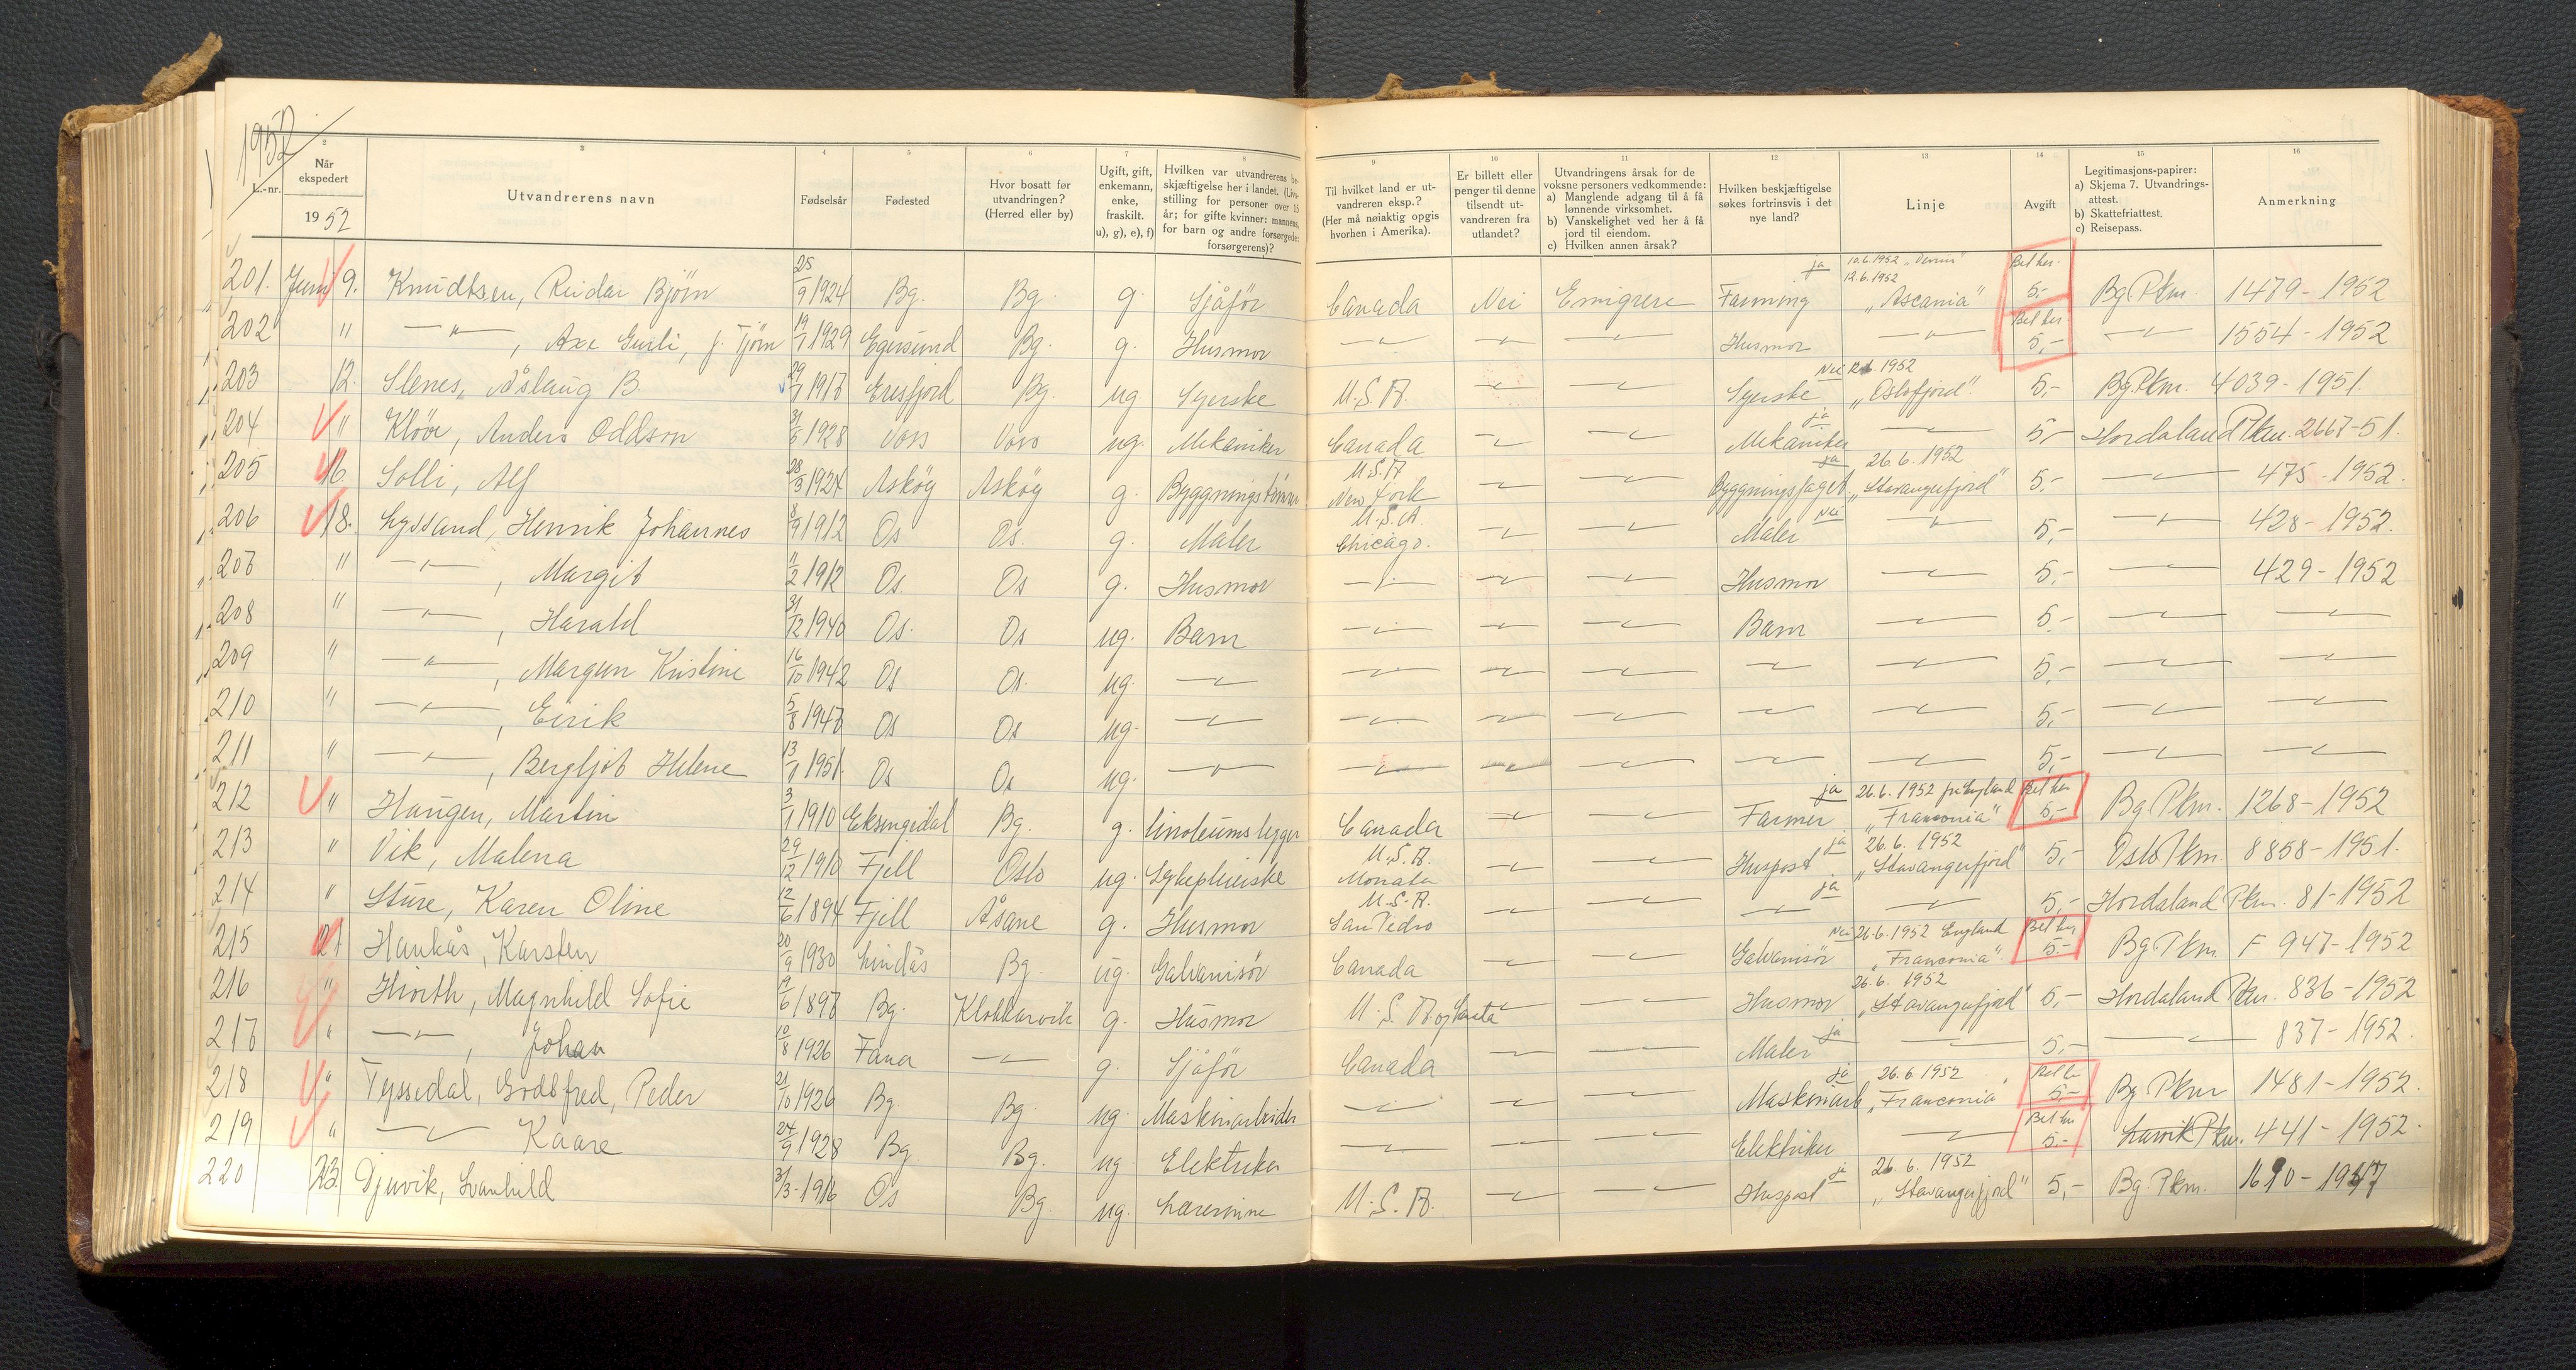 1952
2 3 4 5 6 7 8 9 10 11 12 13 14 15 16
L.-nr. Når ekspedert 1952
Utvandrerens navn
Fødselsår
Fødested
Hvor bosatt før utvandringen? (Herred eller by)
Ugift, gift, enkemann, enke, fraskilt. u), g), e), f)
Hvilken var utvandrerens beskjæftigelse her i landet. (Livsstilling for personer over 15 år; for gifte kvinner: mannens, for barn og andre forsørgede: forsørgerens)?
Til hvilket land er utvandreren eksp.? (Her må nøiaktig opgis hvorhen i Amerika).
Er billett eller penger til denne tilsendt utvandreren fra utlandet?
Utvandringens årsak for de voksne personers vedkommende: a) Manglende adgang til å få lønnende virksomhet. b) Vanskelighet ved her å få jord til eiendom. c) Hvilken annen årsak?
Hvilken beskjæftigelse søkes fortrinsvis i det nye land?
Linje
Avgift
Legitimasjons-papirer: a) Skjema 7. Utvandringsattest. b) Skattefriattest. c) Reisepass.
Anmerkning
201. Juni 9. Knudtsen, Reidar Bjørn 25/9 1924 Bg. Bg. g. Sjåfør Canada Nei Emigrere Farming ja 10.6.1952 "Venus" 12.6.1952 "Ascania" Bet her. 5,- Bg Pkm. 1479-1952
202 " —"—, Axe Gurli, f. Tjørn 19/1 1929 Egersund Bg. g. Husmor —"— —"— —"— Husmor —"— Bet her 5,- —"— 1554-1952
203 12. Slenes, Åslaug B. 29/1 1917 Eresfjord Bg. ug. Syerske U.S.A. —"— —"— Syerske Nei 1952 "Oslofjord" 5,- Bg.Pkm. 4039-1951.
204 " Kløve, Anders Oddson 31/5 1928 Voss Voss ug. Mekaniker Canada —"— —"— Mekaniker ja —"— 5,- Hordaland Pkm. 2667-51.
205 16. Solli, Alf 28/3 1924 Askøy Askøy g. Byggningstømrer U.S.A New York —"— —"— Byggningsfaget ja 26.6.1952 "Stavangerfjord" 5,- —"— 475-1952.
206 18. Lyssand, Henrik Johannes 8/9 1912 Os Os. g. Maler U.S.A. Chicago. —"— —"— Maler Nei —"— 5,- —"— 428-1952.
207 " —"—, Margit 11/2 1912 Os. Os g. Husmor —"— —"— —"— Husmor —"— 5,- —"— 429-1952
208 " —"—, Harald 31/12 1940 Os. Os ug. Barn —"— —"— —"— Barn —"— 5.- —"— —"—
209 " —"—, Margun Kristine 16/10 1942 Os Os. ug. —"— —"— —"— —"— —"— —"— 5,- —"— —"—
210 " —"—, Eirik 5/8 1947 Os Os ug. —"— —"— —"— —"— —"— —"— 5,- —"— —"—
211 " —"—, Bergljot Helene 13/1 1951. Os Os ug. —"— —"— —"— —"— —"— —"— 5,- —"— —"—
212 " Haugen, Martin 3/1 1910 Eksingedal Bg. g. linoleumslegger Canada —"— —"— Farmer ja 26.6.1952 fra England "Franconia" Bet her 5,- Bg. Pkm. 1268-1952
213 " Vik, Malena 29/12 1910 Fjell Oslo ug. Sykepleierske U.S.A. —"— —"— Huspost ja 26.6.1952 "Stavangerfjord" 5,- Oslo Pkm. 8858-1951.
214 " Sture, Karen Oline 12/6 1894 Fjell Åsane g. Husmor U.S.A. San Pedro —"— —"— —"— ja —"— 5,- Hordaland Pkm. 81-1952
215 21 Haukås, Karsten 20/9 1930 Lindås Bg. ug. Galvanisør Canada —"— —"— Galvanisør Nei 26.6.1952 England "Franconia". Bet her 5.- Bg Pkm F 947-1952
216 " Hiorth, Magnhild Sofie 19/6 1897 Bg. Klokkarvik g. Husmor U.S.A. —"— —"— Husmor 26.6.1952 "Stavangerfjord" 5,- Hordaland Pkm. 836-1952
217 " —"—, Johan 10/8 1926 Fana —"— g. Sjåfør Canada —"— —"— Maler ja —"— 5,- —"— 837-1952.
218 " Tyssedal, Godtfred, Peder 21/10 1926 Bg Bg. ug. Maskinarbeider —"— —"— —"— Maskinarb ja 26.6 1952 "Franconia" Bet her 5.- Bg Pkm 1481-1952.
219 " —"— Kaare 24/9 1928 Bg. Bg. ug Elektriker —"— —"— —"— Elektriker —"— Bet her 5.- Larvik Pkm. 441-1952.
220 23. Djuvik, Svanhild 31/3-1916 Os Bg ug. Lærerinne U.S.A. —"— —"— Huspost ja 26.6.1952 "Stavangerfjord" 5,- Bg. Pkm. 1690-1947